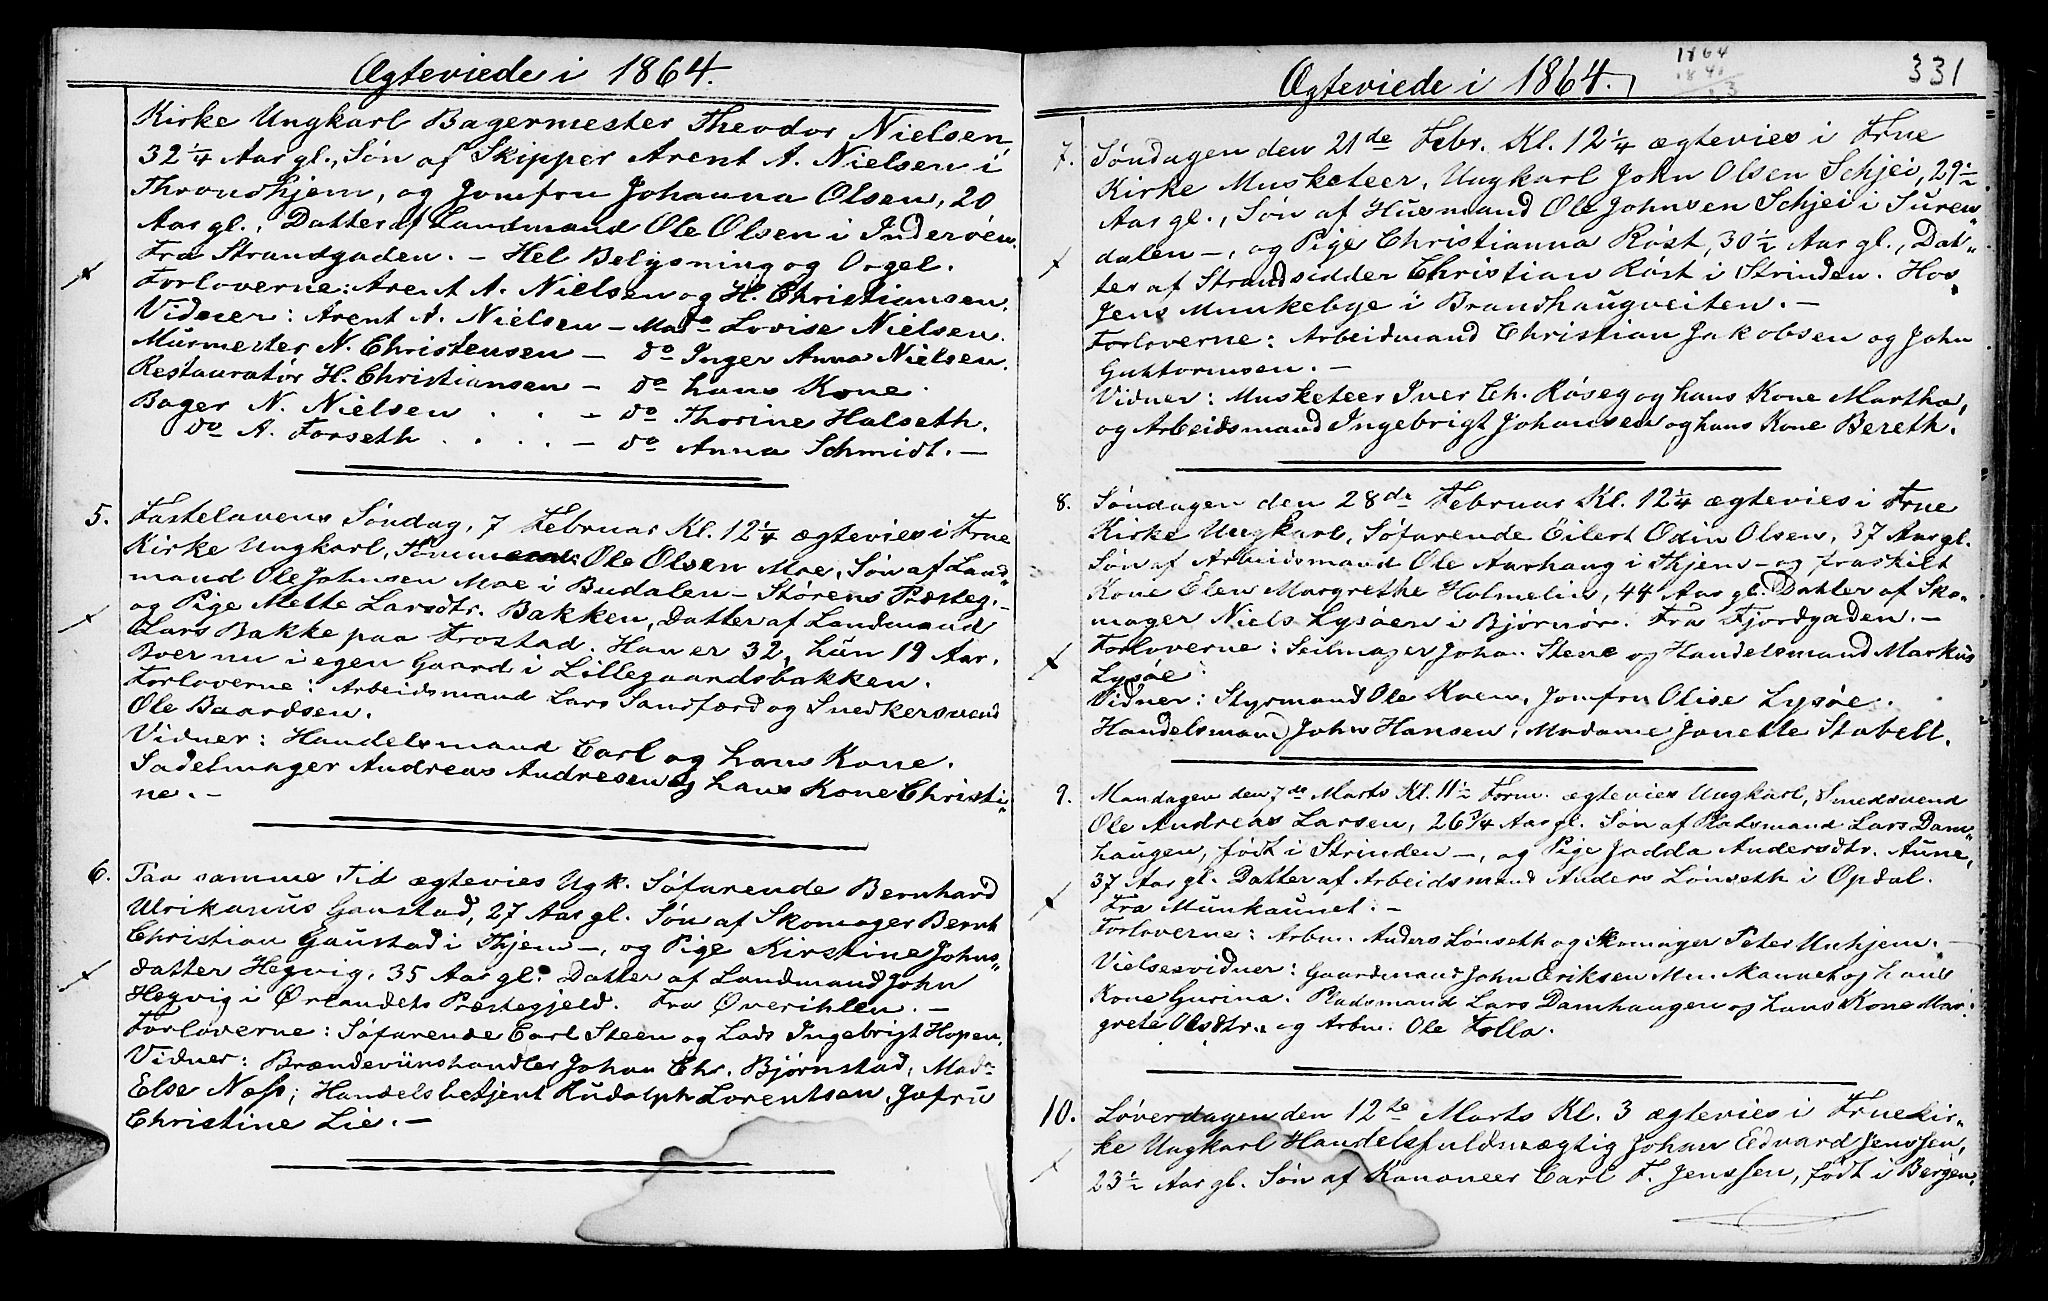 Ægteviede i 1864.
Kirke Ungkarl Bagermester Theodor Nielsen
32 1/4 Aar gl., Søn af Skipper Arent A. Nielsen i
Throndhjem, og Jomfru Johanna Olsen, 20
Aar gl., Datter af Landmand Ole Olsen i Inderøen.
Fra Strandgaden. – Hel Belysning og Orgel.
Forloverne: Arent A. Nielsen og H. Christiansen.
Vidner: Arent A. Nielsen – Mad. Lovise Nielsen.
Murmester N. Christensen – do Inger Anna Nielsen.
Restauratør H. Christiansen – do hans Kone.
Bager N. Nielsen . . – do Thorine Halseth.
do A. Forseth . . . . – do Anna Schmidt. –
5. Fastelavens Søndag, 7 Februar Kl. 12 1/4 ægtevies i Frue
Kirke Ungkarl, Ole Olsen Moe, Søn af Land„
mand Ole Johnsen Moe i Budalen – Størens Præsteg. –
og Pige Mette Larsdtr. Bakken, Datter af Landmand
Lars Bakke paa Frostad. Han er 32, hun 19 Aar.
Boer nu i egen Gaard i Lillegaardsbakken.
Forloverne: Arbeidsmand Lars Sandfærd og Snedkersvend
Ole Baardsen.
Vidner: Handelsmand Carl og hans Kone.
Sadelmager Andreas Andresen og hans Kone Christi„
ne. –
6. Paa samme Tid ægtevies Ugk. Søfarende Bernhard
Ulrikanus Gaustad, 27 Aar gl. Søn af Skomager Bernt
Christian Gaustad i Thjem –, og Pige Kirstine Johns„
datter Hegvig, 35 Aar gl. Datter af Landmand John
Hegvig i Ørlandets Præstegjeld. Fra Øverihlen. –
Forloverne: Søfarende Carl Steen og Lods Ingebrigt Hopen.
Vidner: Brændeviinshandler Johan Chr. Bjørnstad, Mad.
Else Næss; Handelsbetjent Rudolph Lorentsen, Jofru
Christine Lie. –
Ægteviede i 1864.
1864
331
7. Søndagen den 21de Febr. Kl. 12 1/4 ægtevies i Frue
Kirke Musketeer, Ungkarl John Olsen Schjei, 29 1/2
Aar gl., Søn af Huusmand Ole Johnsen Schjei i Suren„
dalen –, og Pige Christianna Røst, 30 1/2 Aar gl., Dat„
ter af Strandsidder Christian Røst i Strinden. Hos
Jens Munkebye i Brandhaugveiten. –
Forloverne: Arbeidmand Christian Jakobsen og John
Guttormsen. –
Vidner: Musketeer Iver Ch. Røseg og hans Kone Martha,
og Arbeidsmand Ingebrigt Johansen og hans Kone Bereth.
8. Søndagen den 28de Februar Kl. 12 1/4 ægtevies i Frue
Kirke Ungkarl, Søfarende Eilert Odin Olsen, 37 Aar gl.
Søn af Arbeidsmand Ole Aarhaug i Thjem – og fraskilt
Kone Elen Margrethe Holmelin, 44 Aar gl. Datter af Sko„
mager Niels Lysøen i Bjørnør. Fra Fjordgaden. –
Forloverne: Seilmager Johan Stene og Handelsmand Markus
Lysøe.
Vidner: Styrmand Ole Koen, Jomfru Olise Lysøe.
Handelsmand John Hansen, Madame Janette Stabell.
9. Mandagen den 7de Marts Kl. 11 1/2 Form. ægtevies Ungkarl, Smedsvend
Ole Andreas Larsen, 26 3/4 Aar gl. Søn af Pladsmand Lars Dam„
haugen, født i Strinden –, og Pige Jadda Andersdtr. Aune,
37 Aar gl. Datter af Arbeidsmand Anders Lønseth i Opdal.
Fra Munkaunet. –
Forloverne: Arbm. Anders Lønseth og Skomager Peter Unhjem. –
Vielsesvidner: Gaardmand John Eriksen Munkaunet og hans
Kone Gurina. Pladsmand Lars Damhaugen og hans Kone Mar„
grete Olsdtr. og Arbm. Ole Folla.
10. Løverdagen den 12te Marts Kl. 3 ægtevies i Fruekir„
ke Ungkarl Handelsfuldmægtig Johan Edvard Jenssen,
23 1/2 Aar gl. Søn af Kanoneer Carl F. Jenssen, født i Bergen,